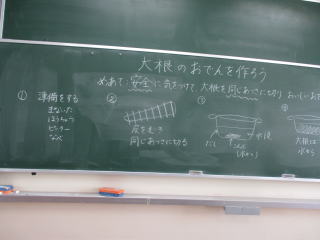 大根のおでんを作ろう
めあて:安全に気をつけて、大根を同じあつさに切り おいしいお
① 準備をする
まないた
ほうちょう
ピーラー
なべ
②
皮をむき
同じあつさに切る
③
だし
こんぶ
④
大根は
水から